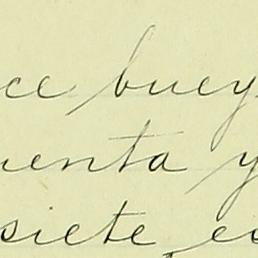 ce buey
uenta y
siete, es